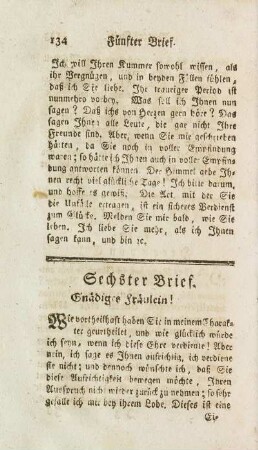 134 Fünfter Brief.
Ich will Ihren Kummer sowohl wissen, als
ihr Vergnügen, und in beyden Fällen fühlen,
daß ich Sie liebe. Ihr trauriger Period ist
nunmehro vorbey. Was soll ich Ihnen nun
sagen? Daß ichs von Herzen gern höre? Das
sagen Ihnen alle Leute, die gar nicht Ihre
Freunde sind. Aber, wenn Sie mir geschrieben
hätten, da Sie noch in voller Empfindung
waren; so hätte ich Ihnen auch in voller Empfin-
dung antworten können. Der Himmel gebe Ih-
nen recht viel glückliche Tage! Ich bitte darum,
und hoffe es gewiß. Die Art, mit der Sie
die Unfälle ertragen, ist ein sicheres Verdienst
zum Glücke. Melden Sie mir bald, wie Sie
leben. Ich liebe Sie mehr, als ich Ihnen
sagen kann, und bin ꝛc.
Sechster Brief.
Gnädiges Fräulein!
Wie vortheilhaft haben Sie in meinem Charak-
ter geurtheilet, und wie glücklich würde
ich seyn, wenn ich diese Ehre verdiente! Aber
nein, ich sage es Ihnen aufrichtig, ich verdiene
sie nicht; und dennoch wünschte ich, daß Sie
diese Aufrichtigkeit bewegen möchte, Ihren
Ausspruch nicht wieder zurück zu nehmen; so sehr
gefalle ich mir bey ihrem Lobe. Dieses ist eine
Ei-